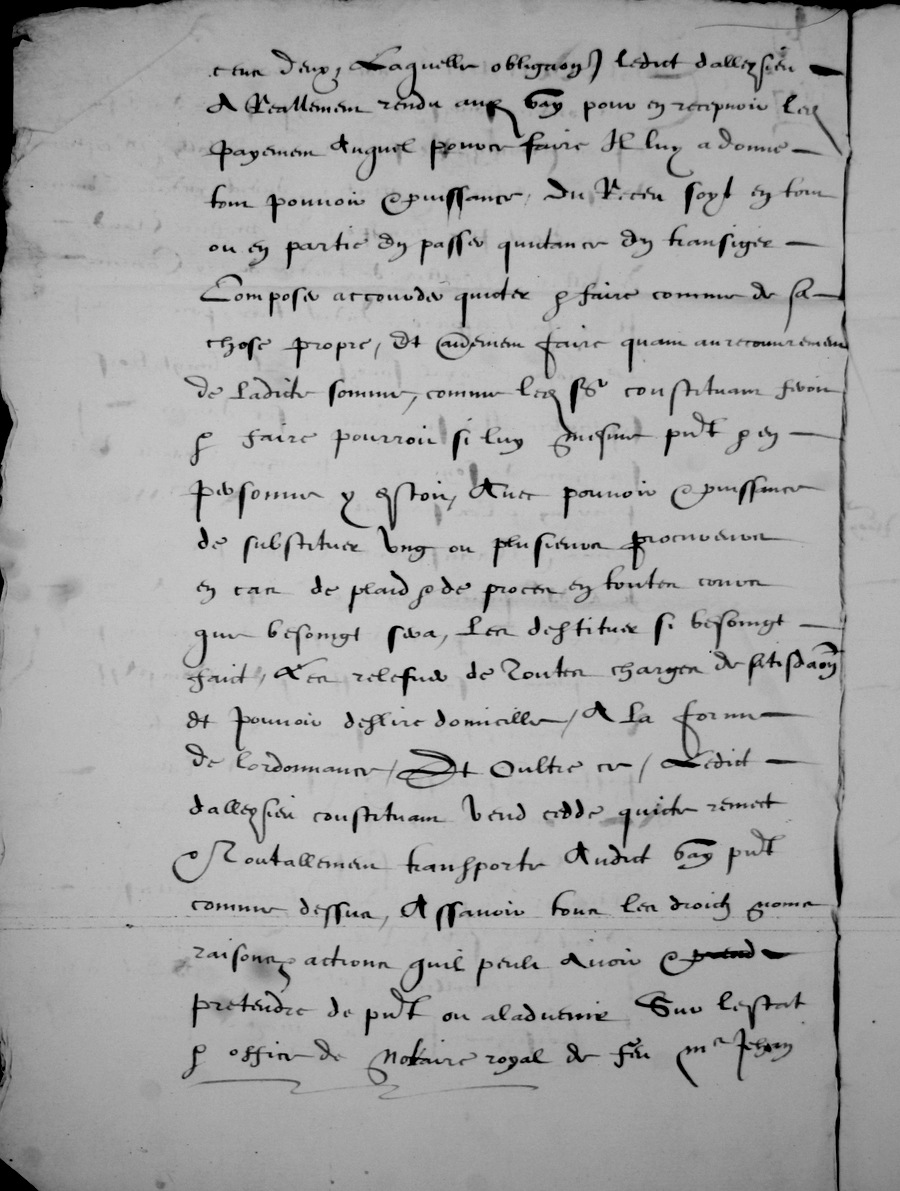 ceux deux, Laquelle obligaon ledict dalleysieu
A Reallement rendu aud Vay pour en recepvoir les
payement Auquel pouvoir faire Il luy a donne
tout pouvoir & puissance, du Receu soyt en tout
ou en partie dy passer quictance dy transiger
Composer accourder quicter & faire comme de sa
chose propre, Et autrement faire quant au recouvrement
de Ladicte somme, comme led sr constituant feroit
& faire pourroit si luy mesme pnt & en
personne y estoit, Avec pouvoir & puissance
de substituer ung ou plusieurs procureurs
en cas de plaid & de proces en toutes cours
que besoingt sera, Les destituer si besoingt
faict, Les relepver de toutes charges de satisdaon
Et pouvoir deslire domicille, A La forme
de lordonnance, Et Oultre ce, Ledict
dalleysieu constituant vend cedde quicte remect
& Toutallement transporte Audict Vay pnt
comme dessus, Assavoir tous les droictz noms
raisons actions quil peult Avoir &
pretendre de pnt ou aladvenir Sur lestat
& office de Notaire royal de feu me Jehan